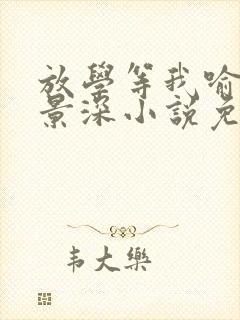 放學等我喻
景深小說免
韦大樂